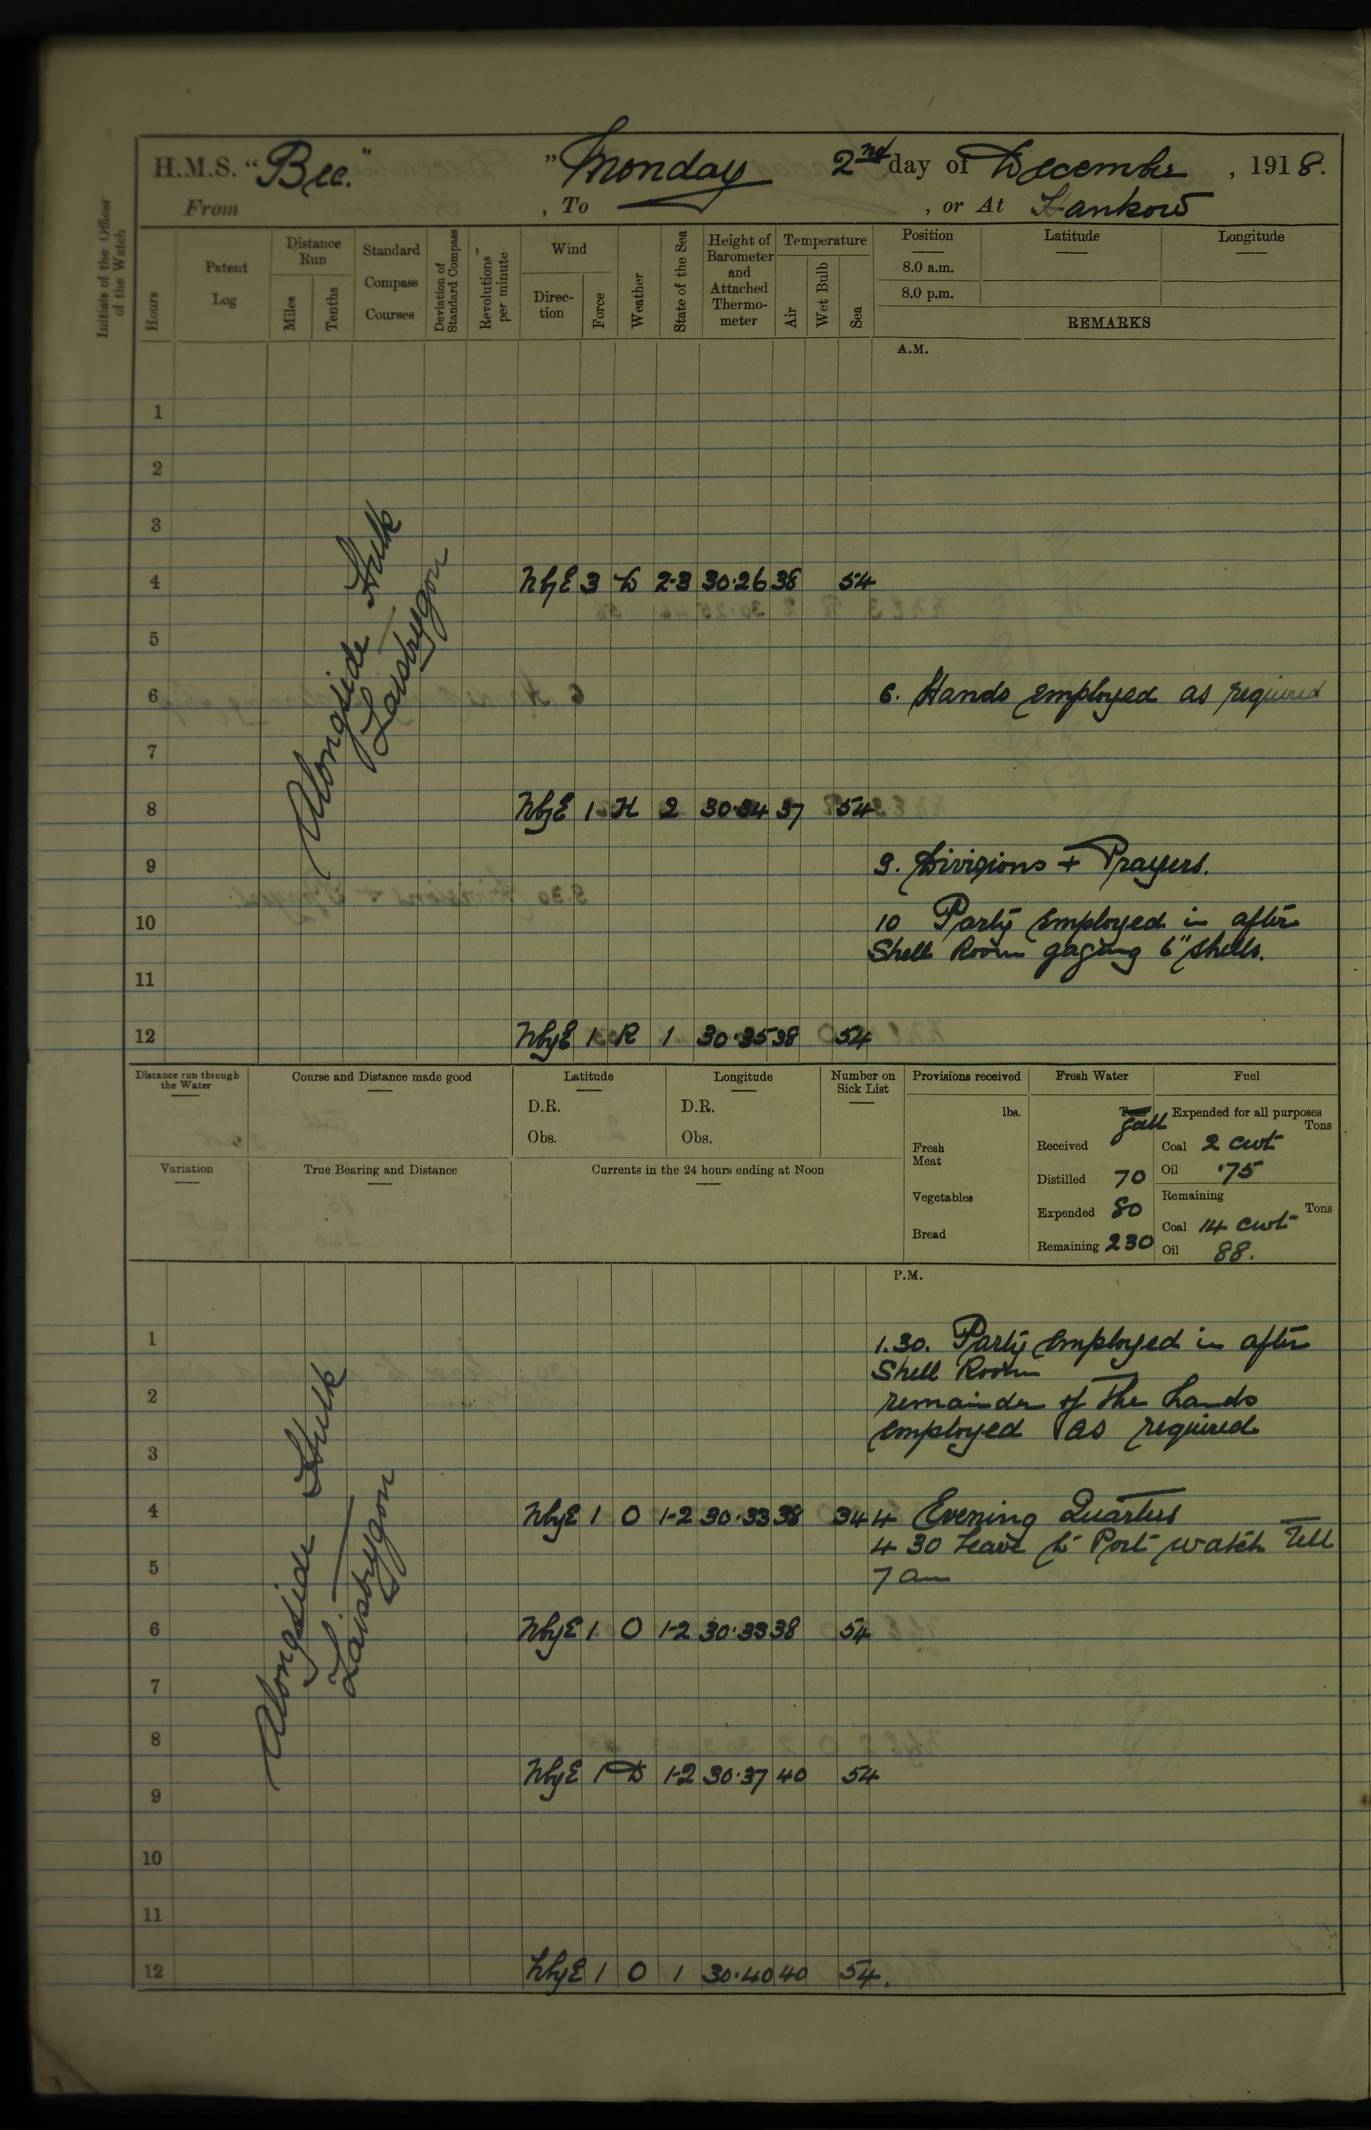 H.M.S. "Bee." " Monday 2nd day of December , 1918.
From , To , or At Hankow
Initials of the Officer of the Watch
Hours
Patent Log
Distance Run
Miles
Tenths
Standard Compass Courses
Deviation of Standard Compass
Revolutions per minute
Wind
Direc-tion
Force
Weather
State of the Sea
Height of Barometer and Attached Thermo-meter
Temperature
Air
Wet Bulb
Sea
Position Latitude Longitude
8.0 a.m.
8.0 p.m.
REMARKS
A.M.
1
2
3
Alongside Hulk
4 NbyE 3 D 2-3 30.26 38 54
5
6 6. Hands employed as required
7
8 NbyE 1 H 2 30.34 37 54
9 9. Divisions + Prayers.
10 10 Party employed in after
Shell Room gaging 6" shells.
11
12 NbyE 1 R 1 30.35 38 54
Distance run through the Water
Course and Distance made good
Latitude
D.R.
Obs.
Longitude
D.R.
Obs.
Number on Sick List
Provisions received
lbs.
Fresh Meat
Vegetables
Bread
Fresh Water
Tons Gall
Received
Distilled 70
Expended 80
Remaining 230
Fuel
Expended for all purposes
Tons
Coal 2 cwt
Oil .75
Remaining
Tons
Coal 14 cwt
Oil 88.
Variation
True Bearing and Distance
Currents in the 24 hours ending at Noon
P.M.
1 1.30. Party employed in after
Shell Room
2 remainder of the hands
employed as required
3
Alongside Hulk
4 NbyE 1 O 1-2 30.33 38 34 4 Evening Quarters
4 30 Leave to Port watch Till
5 7 am
6 NbyE 1 O 1-2 30.33 38 54
7
8 NbyE 1 D 1-2 30.37 40 54
9
10
11
12 NbyE 1 O 1 30.40 40 54.